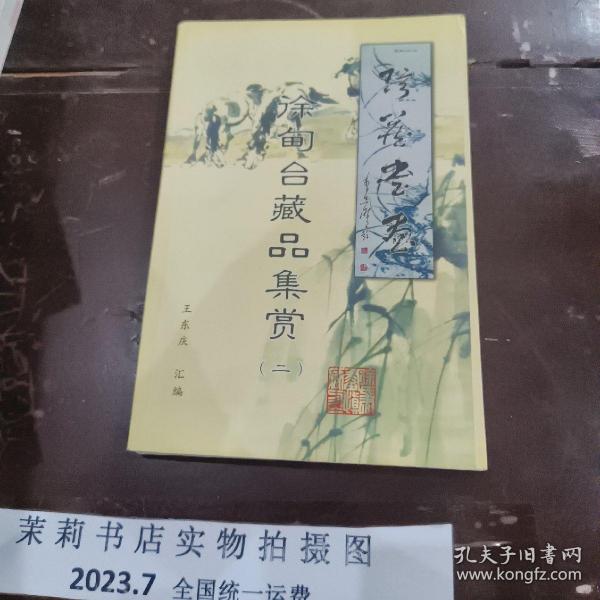 徐甸台藏品集赏
（二）
王东庆 汇编
茉莉书店实物拍摄图
2023.7 全国统一运费
孔夫子旧书网
www.kongfz.com